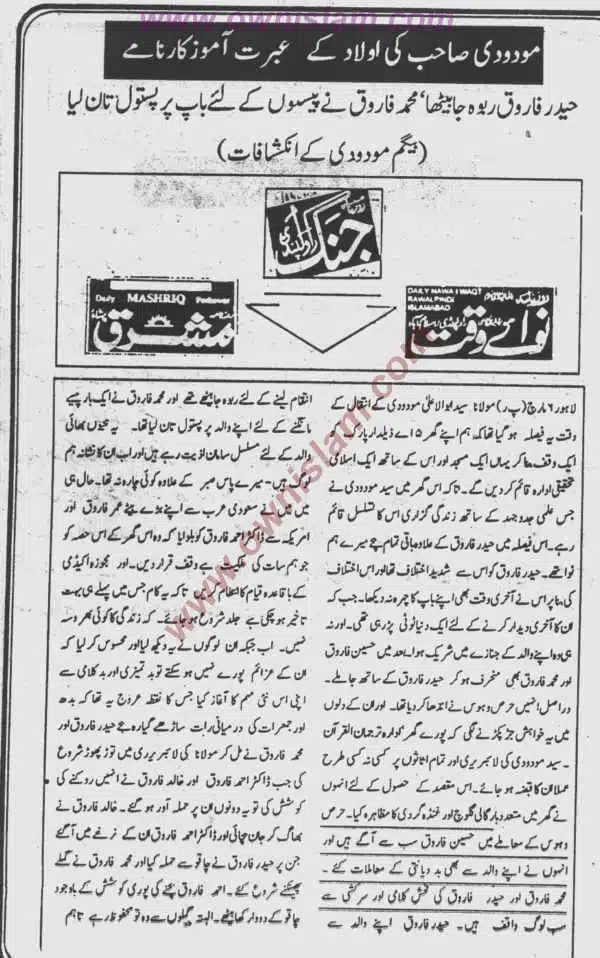 www.ownislam.com
مودودی صاحب کی اولاد کے عبرت آموز کارنامے
حیدر فاروق ربوہ جا بیٹھا، محمد فاروق نے پیسوں کے لئے باپ پر پستول تان لیا
(بیگم مودودی کے انکشافات)
جنگ
راولپنڈی
Daily MASHRIQ Peshawar
مشرق
DAILY NAWA I WAQT
RAWALPINDI
ISLAMABAD
نوائے وقت
لاہور ۶ مارچ (پ ر) مولانا سید ابوالاعلیٰ مودودی کے انتقال کے
وقت یہ فیصلہ ہو گیا تھا کہ ہم اپنے گھر ۵ اے ذیلدار پارک کو
ایک وقف بنا کر یہاں ایک مسجد اور اس کے ساتھ ایک اسلامی
تحقیقی ادارہ قائم کر دیں گے۔ تاکہ اس گھر میں سید مودودی نے
جس علمی جدوجہد کے ساتھ زندگی گزاری اس کا تسلسل قائم
رہے۔ اس فیصلہ میں حیدر فاروق کے علاوہ باقی تمام بچے میرے ہم
نوا تھے۔ حیدر فاروق کو اس سے شدید اختلاف تھا اور اس اختلاف
کی بنا پر اس نے آخری وقت بھی اپنے باپ کا چہرہ نہ دیکھا۔ جب کہ
ان کا آخری دیدار کرنے کے لئے ایک دنیا ٹوٹی پڑ رہی تھی۔ اور نہ
ہی وہ اپنے والد کے جنازے میں شریک ہوا۔ بعد میں حسین فاروق
اور محمد فاروق بھی منحرف ہو کر حیدر فاروق کے ساتھ جا ملے۔
دراصل انہیں حرص و ہوس نے اندھا کر دیا تھا۔ اور ان کے دلوں
میں یہ خواہش جڑ پکڑنے لگی کہ پورے گھر، ادارہ ترجمان القرآن
۔ سید مودودی کی لائبریری اور تمام اثاثوں پر کسی نہ کسی طرح
عملا ان کا قبضہ ہو جائے۔ اس مقصد کے حصول کے لئے انہوں
نے گھر میں متعدد بار گالی گلوچ اور غنڈہ گردی کا مظاہرہ کیا۔ حرص
و ہوس کے معاملے میں حسین فاروق سب سے آگے ہیں اور
انہوں نے اپنے والد سے بھی بد دیانتی کے معاملات کئے۔
محمد فاروق اور حیدر فاروق کی فحش کلامی اور سرکشی سے
سب لوگ واقف ہیں۔ حیدر فاروق اپنے والد سے
انتقام لینے کے لئے ربوہ جا بیٹھے تھے اور محمد فاروق نے ایک بار پیسے
مانگنے کے لئے اپنے والد پر پستول تان لیا تھا۔ یہ تینوں بھائی
والد کے لئے مسلسل سامان اذیت رہے ہیں اور اب ان کا نشانہ ہم
لوگ ہیں۔ میرے پاس صبر کے علاوہ کوئی چارہ نہ تھا۔ حال ہی
میں میں نے سعودی عرب سے اپنے بڑے بیٹے عمر فاروق اور
امریکہ سے ڈاکٹر احمد فاروق کو بلوایا کہ وہ اس گھر کے اس حصہ کو
جو ہم سات کی ملکیت ہے وقف قرار دیں۔ اور مجوزہ اکیڈمی
کے باقاعدہ قیام کا انتظام کریں تاکہ یہ کام جس میں پہلے ہی بہت
تاخیر ہو چکی ہے جلد شروع ہو جائے۔ کہ زندگی کا کوئی بھروسہ
نہیں۔ اب جبکہ ان لوگوں نے یہ دیکھ لیا اور محسوس کر لیا کہ
ان کے عزائم پورے نہیں ہو سکتے تو بد تمیزی اور بد کلامی سے
اپنی اس نئی مہم کا آغاز کیا جس کا نقطہ عروج یہ تھا کہ بدھ
اور جمعرات کی درمیانی رات ساڑھے گیارہ بجے حیدر فاروق اور
محمد فاروق نے مل کر مولانا کی لائبریری میں توڑ پھوڑ شروع
کی جب ڈاکٹر احمد فاروق اور خالد فاروق نے انہیں روکنے کی
کوشش کی تو یہ دونوں ان پر حملہ آور ہو گئے۔ خالد فاروق نے
بھاگ کر جان بچائی اور ڈاکٹر احمد فاروق ان کے نرغے میں آ گئے
جن پر حیدر فاروق نے چاقو سے حملہ کیا اور محمد فاروق نے گملے
پھینکنے شروع کئے۔ احمد فاروق بچنے کی پوری کوشش کے باوجود
چاقو کے دو وار کھا بیٹھے۔ البتہ گملوں سے وہ تو محفوظ رہے تاہم
www.ownislam.com